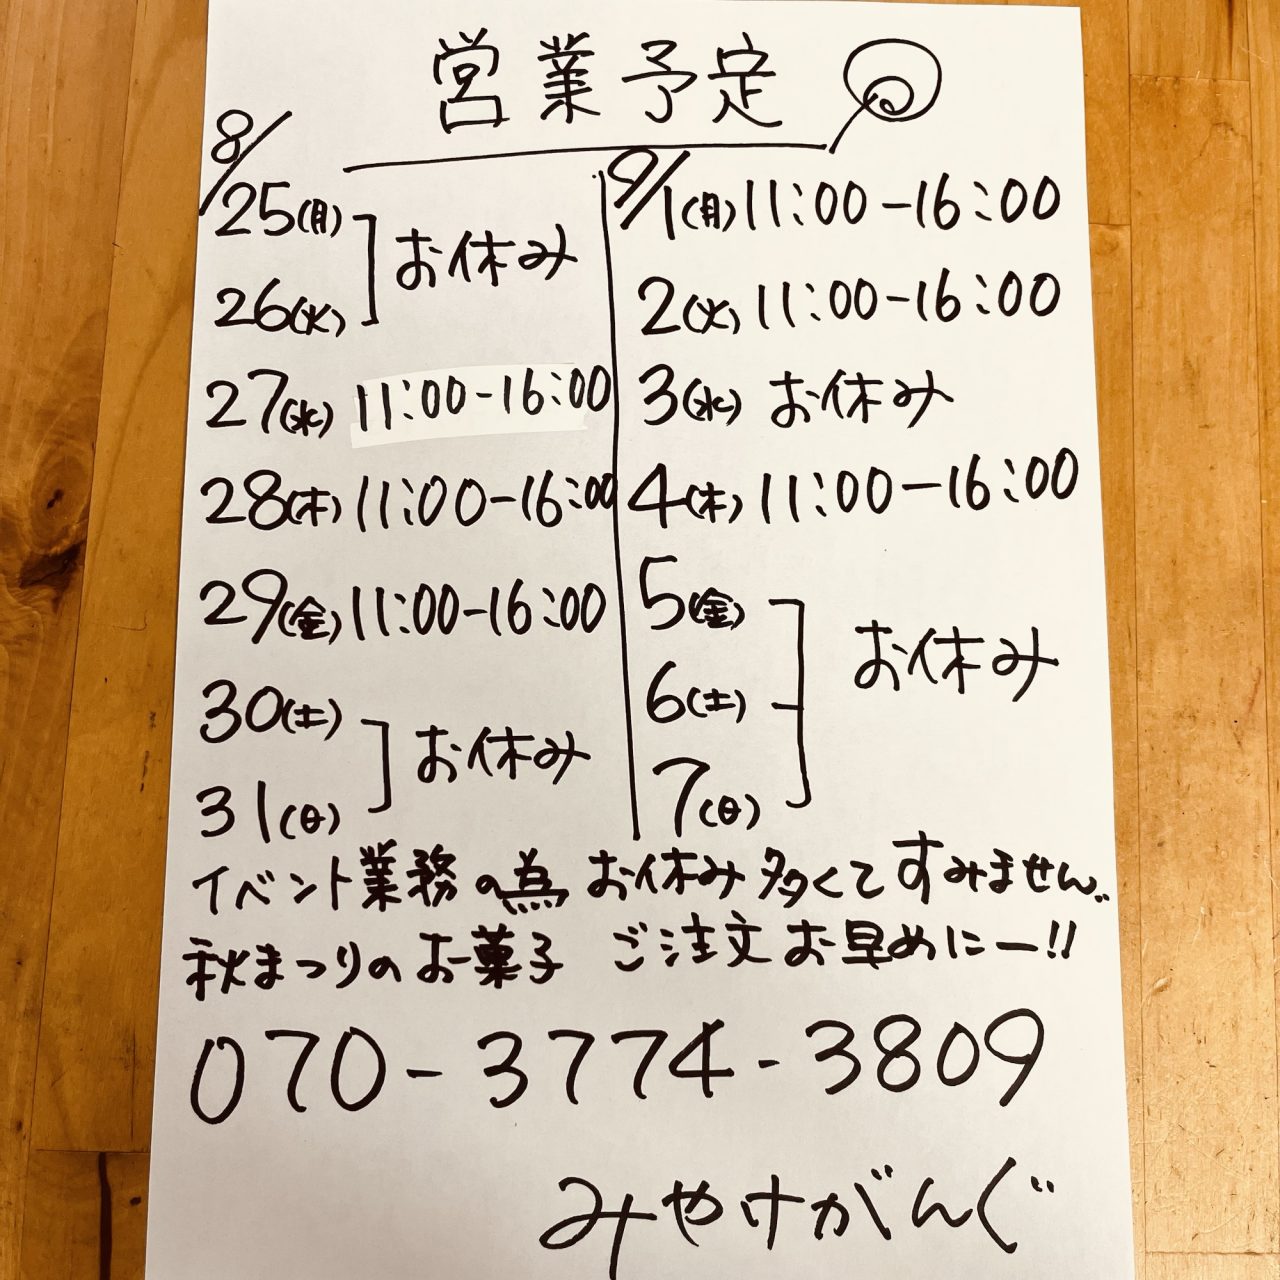 営業予定
8/25(月)
26(火)
お休み
27(水) 11:00-16:00
28(木) 11:00-16:00
29(金) 11:00-16:00
30(土)
31(日)
お休み
9/1(月) 11:00-16:00
2(火) 11:00-16:00
3(水) お休み
4(木) 11:00-16:00
5(金)
6(土)
7(日)
お休み
イベント業務の為 お休み多くてすみません。
秋まつりのお菓子 ご注文お早めにー!!
070-3774-3809
みやけがんぐ